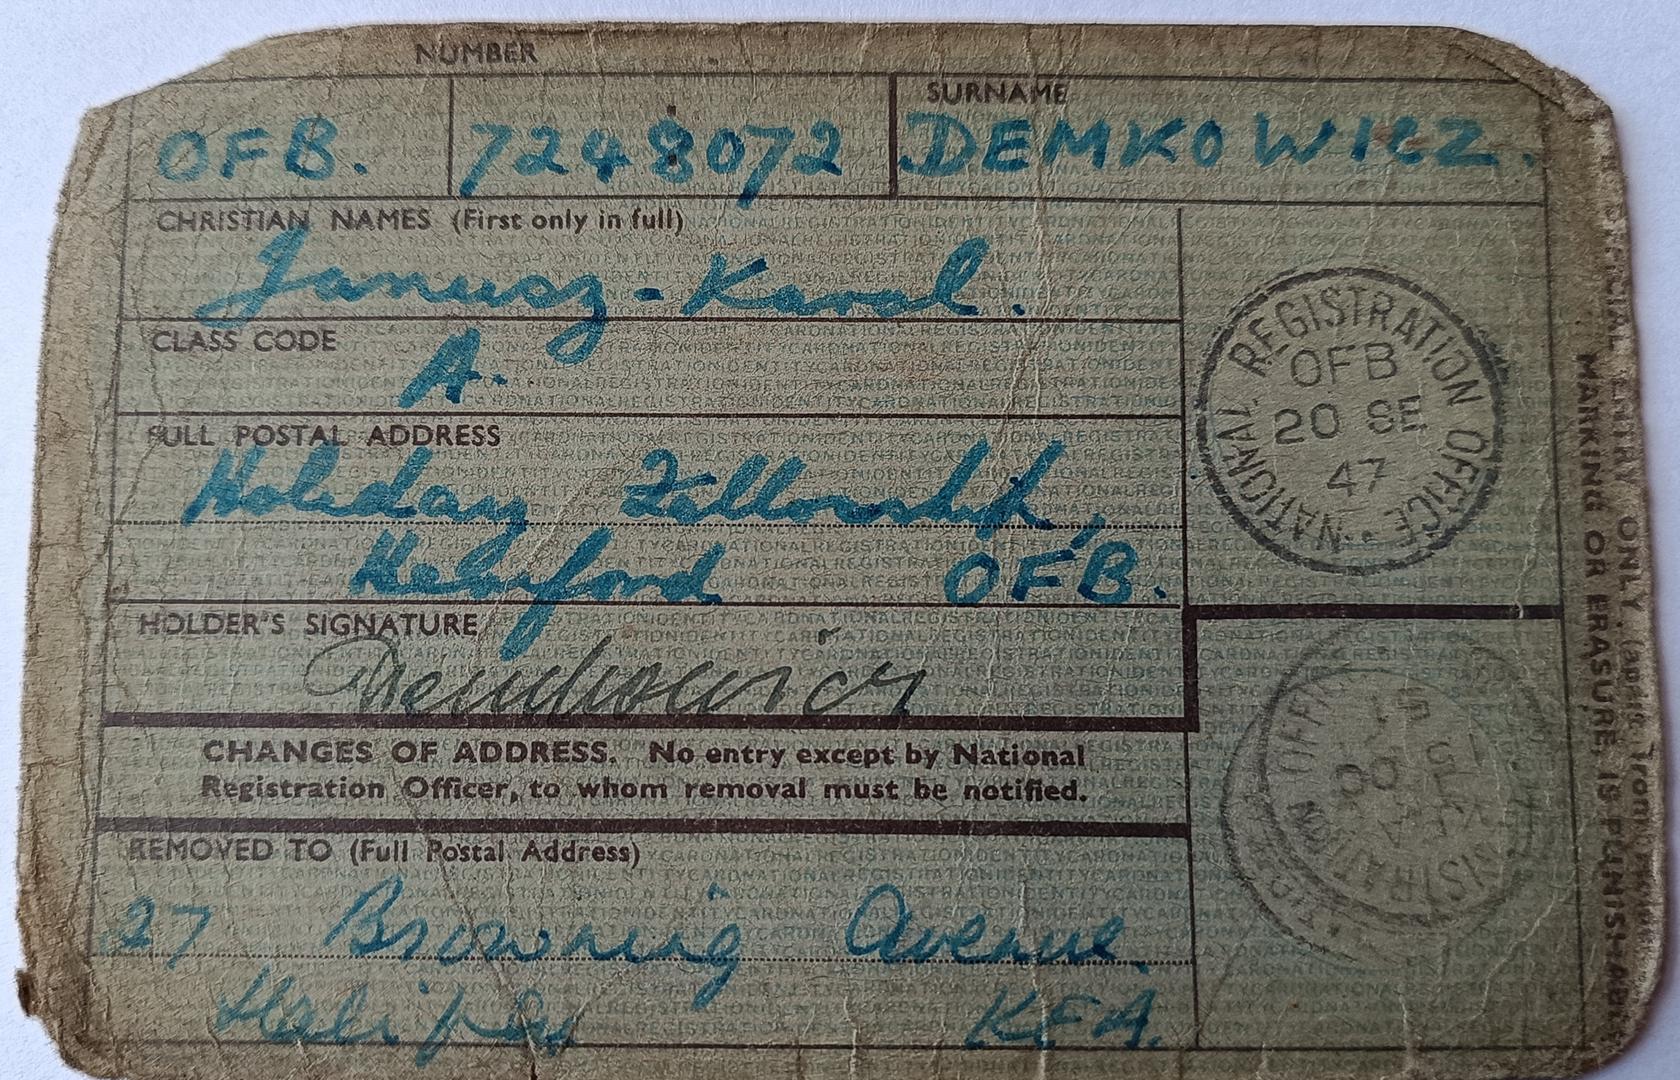 NUMBER
OFB. 7248072
SURNAME
DEMKOWICZ.
CHRISTIAN NAMES (First only in full)
Janusz-Karol.
CLASS CODE
A.
FULL POSTAL ADDRESS
Holiday Fellowship,
Helsford OFB.
HOLDER'S SIGNATURE
Demkowicz
CHANGES OF ADDRESS. No entry except by National
Registration Officer, to whom removal must be notified.
REMOVED TO (Full Postal Address)
27 Browning Avenue.
Halifax KFA.
NATIONAL REGISTRATION OFFICE
OFB
20 SE
47
ONLY. (apart from
MARKING OR ERASURE, IS PUNISHABLE